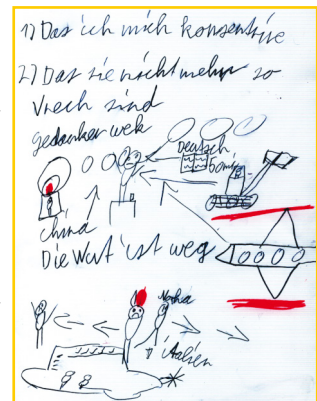 1) Das ich mich konsentrire
2) Das sie nicht mehr so
vrech sind
gedanken wek
Deutsch
50min
China
Die Wut ist weg
Italien